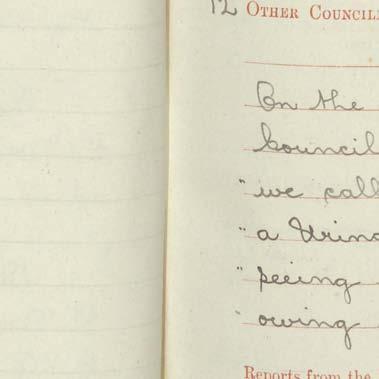 12 OTHER COUNCIL
On the
Council
" we call
" a Urina
" peeing
" owing
Reports from the